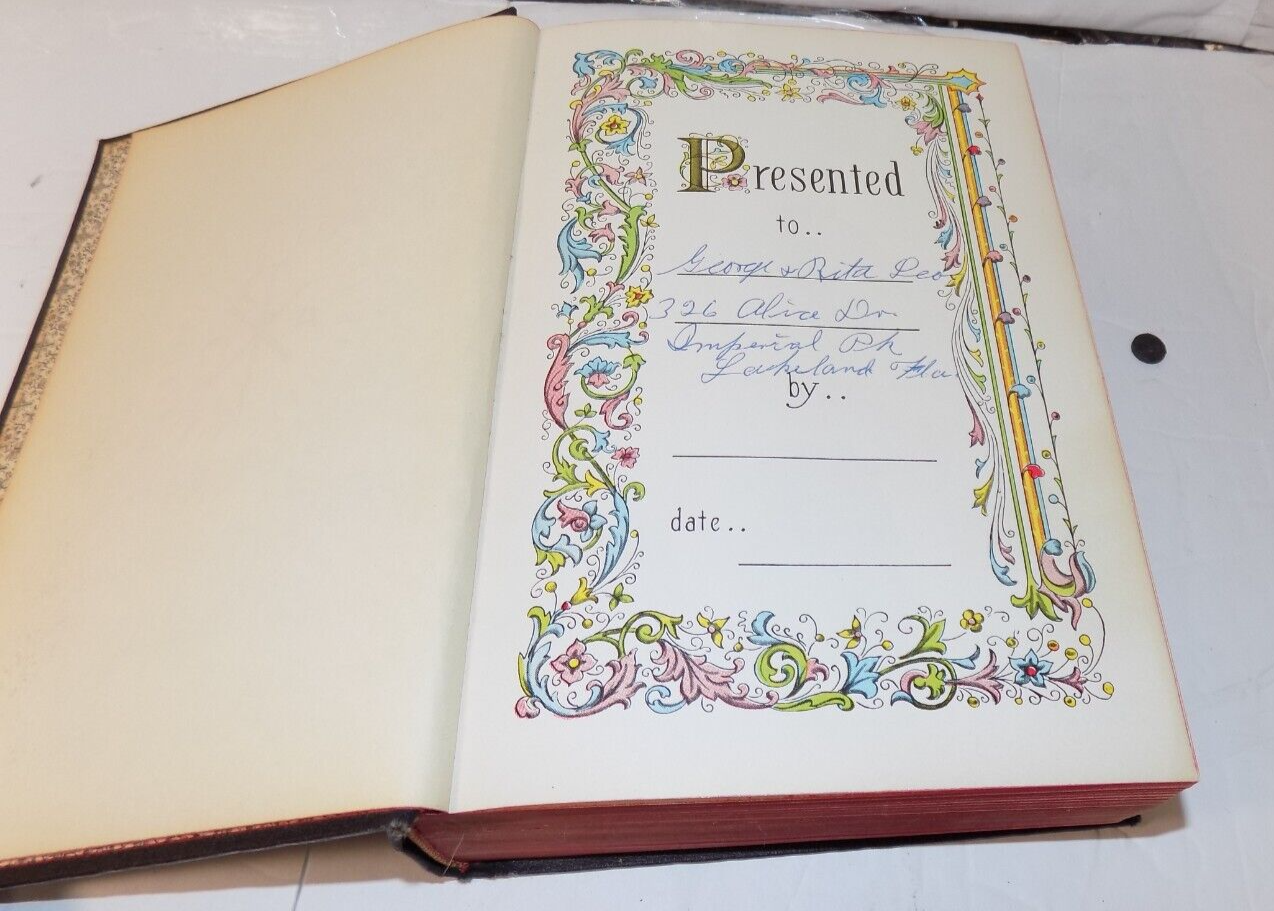 Presented
to..
George & Rita Leo
326 Alice Dr.
Imperial Pk
Lakeland Fla
by..
date..